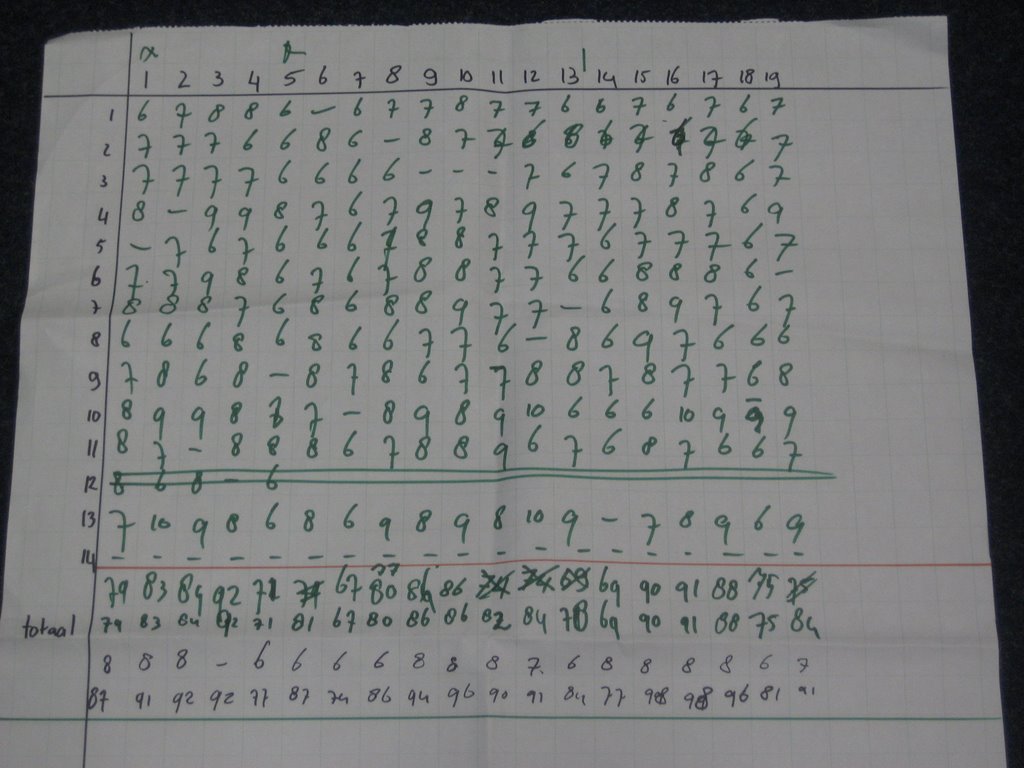 x
1 2 3 4 5 6 7 8 9 10 11 12 13 14 15 16 17 18 19
1 6 7 8 8 6 — 6 7 7 8 7 7 6 6 7 6 7 6 7
2 7 7 7 6 6 8 6 — 8 7 7
3 7 7 7 7 6 6 6 6 - - - 7 6 7 8 7 8 6 7
4 8 — 9 9 8 7 6 7 9 7 8 9 7 7 7 8 7 6 9
5 — 7 6 7 6 6 6 7 8 8 7 7 7 6 7 7 7 6 7
6 7 7 9 8 6 7 6 7 8 8 7 7 6 6 8 8 8 6 —
7 8 8 8 7 6 8 6 8 8 9 7 7 — 6 8 9 7 6 7
8 6 6 6 8 6 8 6 6 7 7 6 — 8 6 9 7 6 6 6
9 7 8 6 8 — 8 7 8 6 7 7 8 8 7 8 7 7 6 8
10 8 9 9 8 7 7 — 8 9 8 9 10 6 6 6 10 9 9 9
11 8 7 - 8 8 8 6 7 8 8 9 6 7 6 8 7 6 6 7
12 8 6 8 — 6
13 7 10 9 8 6 8 6 9 8 9 8 10 9 — 7 8 9 6 9
14 — — — — — — — — — — — — — — — — — — —
77
79 83 84 92 71 67 80 86 86 69 90 91 88 75
totaal 79 83 84 92 71 81 67 80 86 86 82 84 78 69 90 91 88 75 84
8 8 8 — 6 6 6 6 8 8 8 7. 6 8 8 8 8 6 7
87 91 92 92 77 87 74 86 94 96 90 91 84 77 98 98 96 81 91